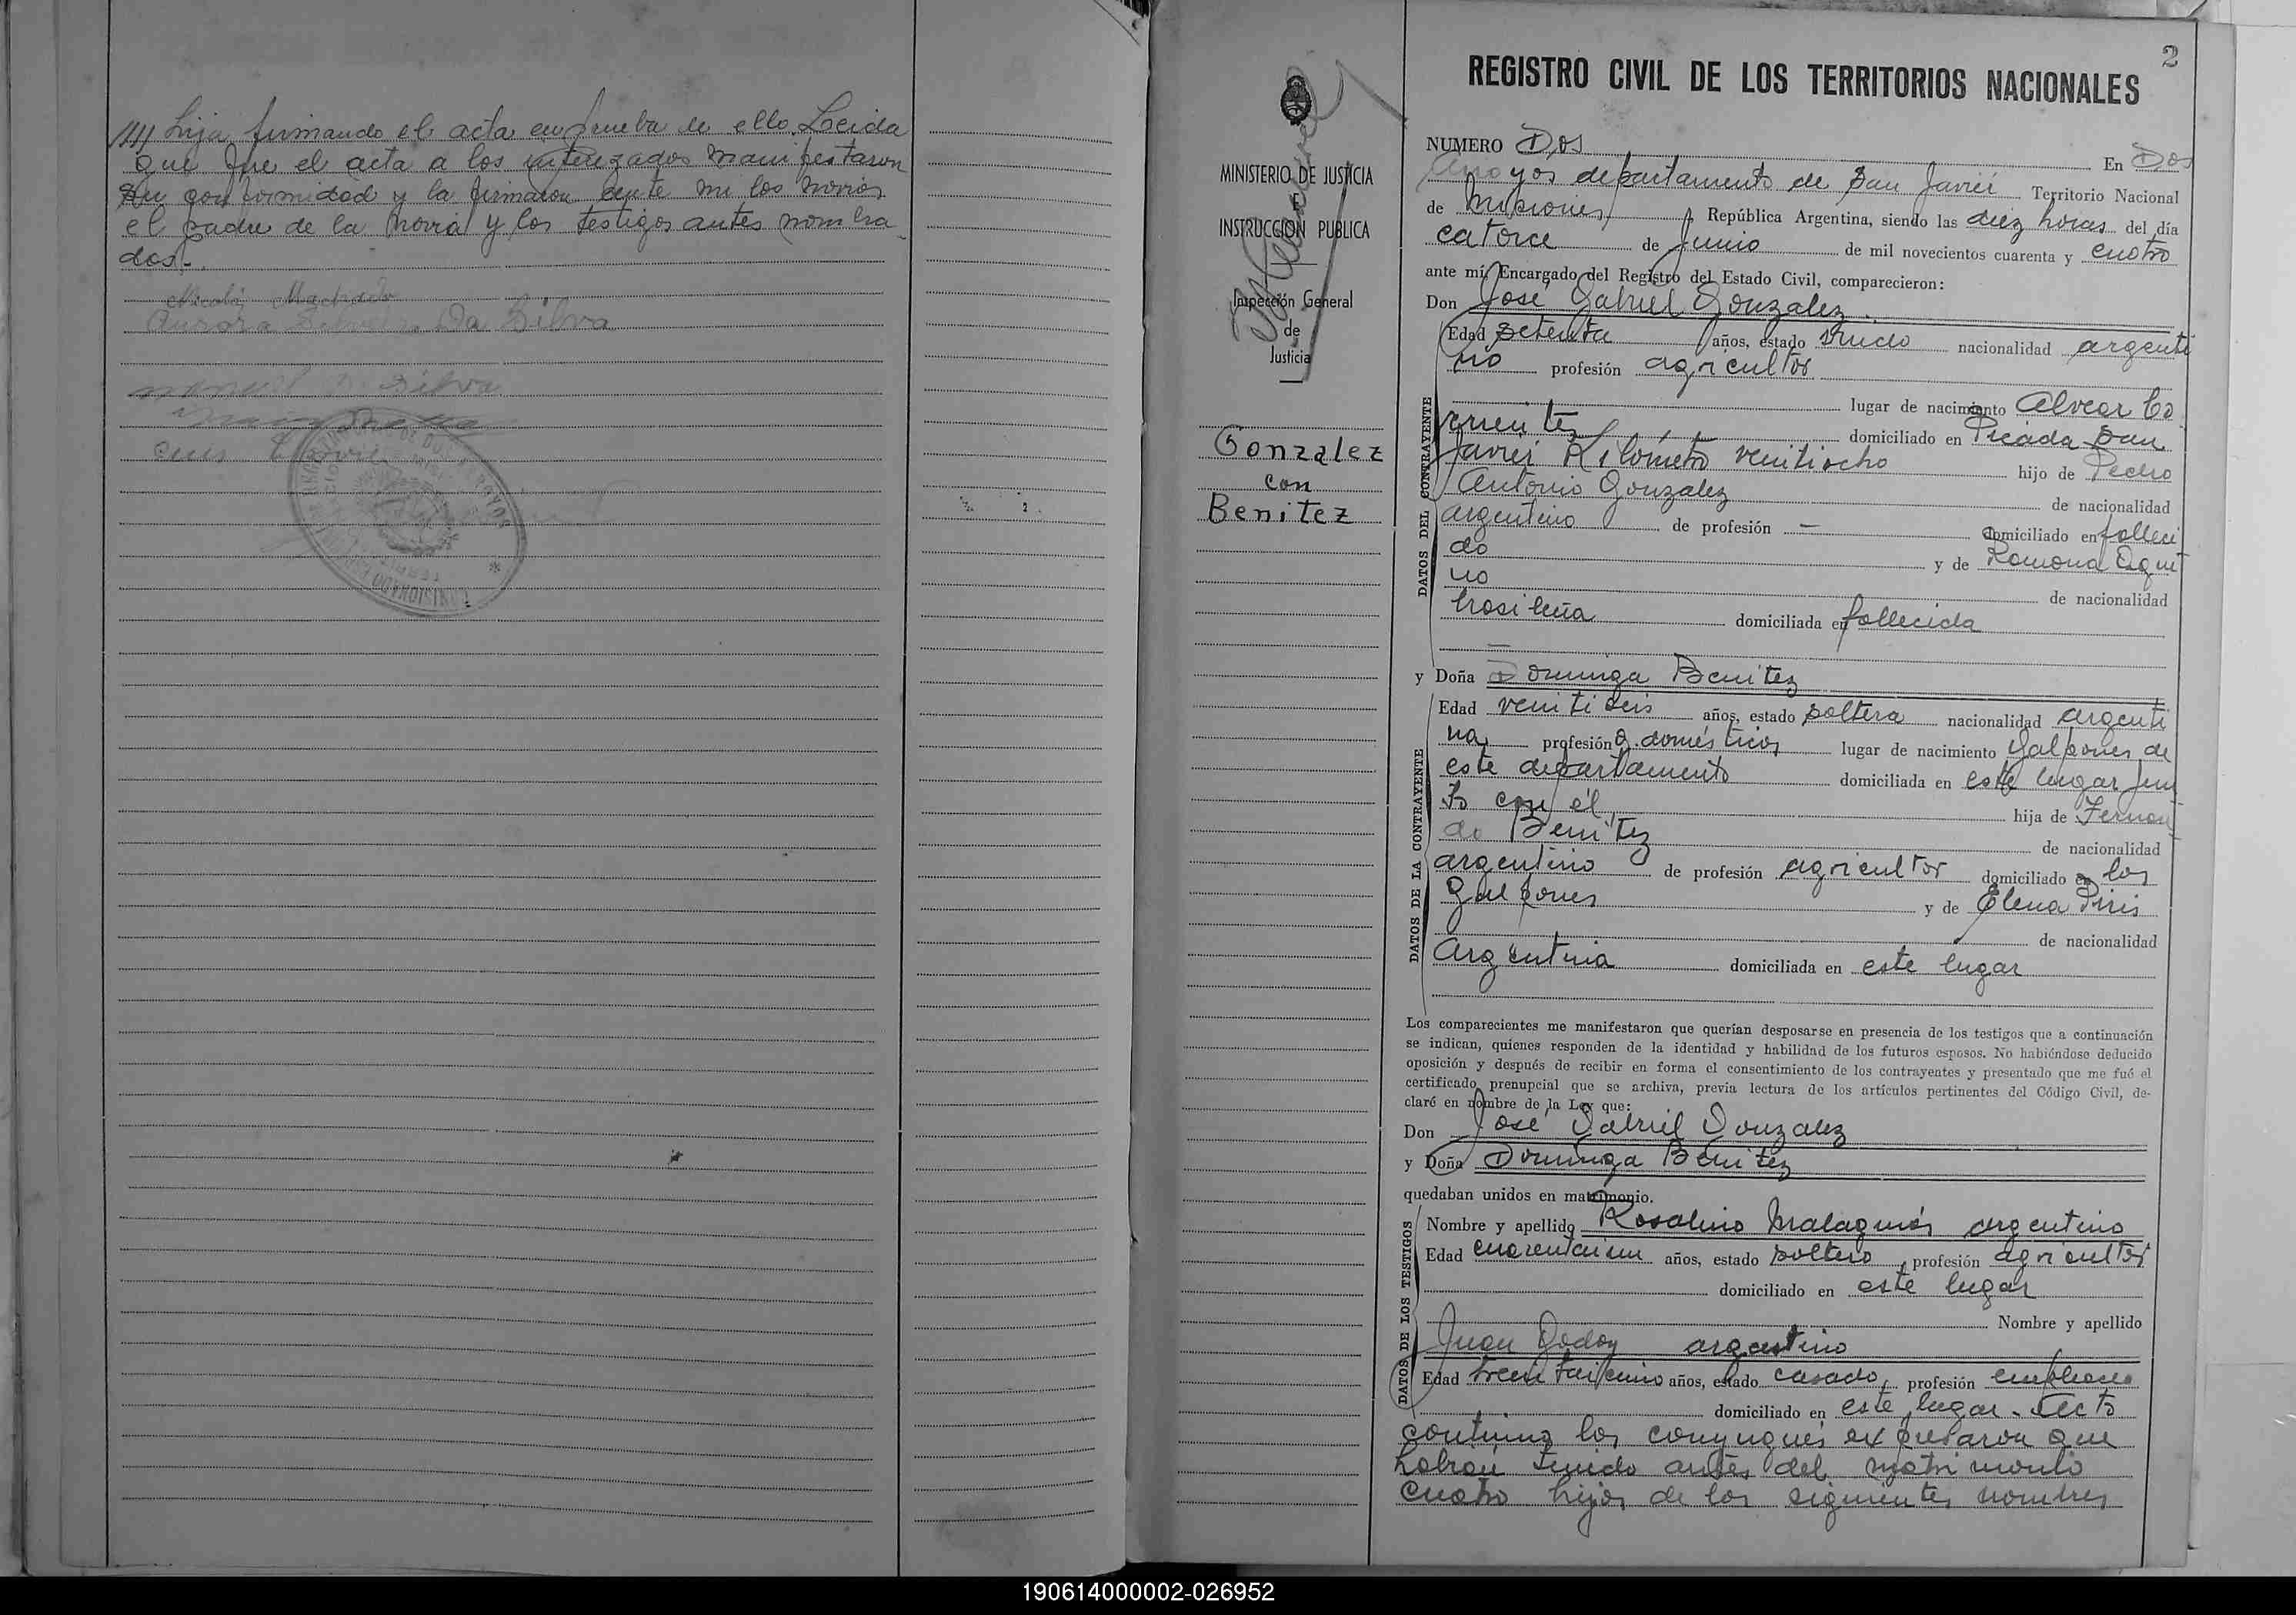 //// hija firmando el acta en prueba de ello. Leida
que fue el acta a los interezados manifestaron
su conformidad y la firmaron ante mi los novios
el padre de la novia y los testigos antes nombra
dos.-
Nicolás Machado
Aurora Da Silva
Silva
MINISTERIO DE JUSTICIA
E
INSTRUCCIÓN PUBLICA
Inspección General
de
Justicia
Gonzalez
con
Benitez
2
REGISTRO CIVIL DE LOS TERRITORIOS NACIONALES
NUMERO Dos En Dos
Arroyos departamento de San Javier Territorio Nacional
de Misiones República Argentina, siendo las diez horas del día
catorce de Junio de mil novecientos cuarenta y cuatro
ante mí, Encargado del Registro del Estado Civil, comparecieron:
Don José Gabriel Gonzalez
Edad setenta años, estado viudo nacionalidad argenti
no profesión agricultor
lugar de nacimiento Alvear Co
rrientes domiciliado en Picada San
Javier Kilometro veintiocho hijo de Pedro
Antonio Gonzalez de nacionalidad
argentino de profesión — domiciliado en falleci
do y de Ramona Esqui
no de nacionalidad
brasileña domiciliada en fallecida
y Doña Dominga Benitez
Edad veintiseis años, estado soltera nacionalidad argenti
na profesión q. domésticos lugar de nacimiento Galpones de
este departamento domiciliada en este lugar jun
to con él hija de Fernan
do Benitez de nacionalidad
argentino de profesión agricultor domiciliado en los
Galpones y de Elena Piris
de nacionalidad
Argentina domiciliada en este lugar
DATOS DEL CONTRAYENTE
DATOS DE LA CONTRAYENTE
Los comparecientes me manifestaron que querían desposarse en presencia de los testigos que a continuación
se indican, quienes responden de la identidad y habilidad de los futuros esposos. No habiéndose deducido
oposición y después de recibir en forma el consentimiento de los contrayentes y presentado que me fué el
certificado prenupcial que se archiva, previa lectura de los artículos pertinentes del Código Civil, de-
claré en nombre de la Ley que:
Don José Gabriel Gonzalez
y Doña Dominga Benitez
quedaban unidos en matrimonio.
Nombre y apellido Rosalino Malaquias argentino
Edad cuarentaiun años, estado soltero profesión agricultor
domiciliado en este lugar
Nombre y apellido
Juan Godoy argentino
Edad años, estado casado, profesión empleado
domiciliado en este lugar. Acto
continuo los conyugues expresaron que
habian tenido antes del matrimonio
cuatro hijos de los siguientes nombres
DATOS DE LOS TESTIGOS
190614000002-026952